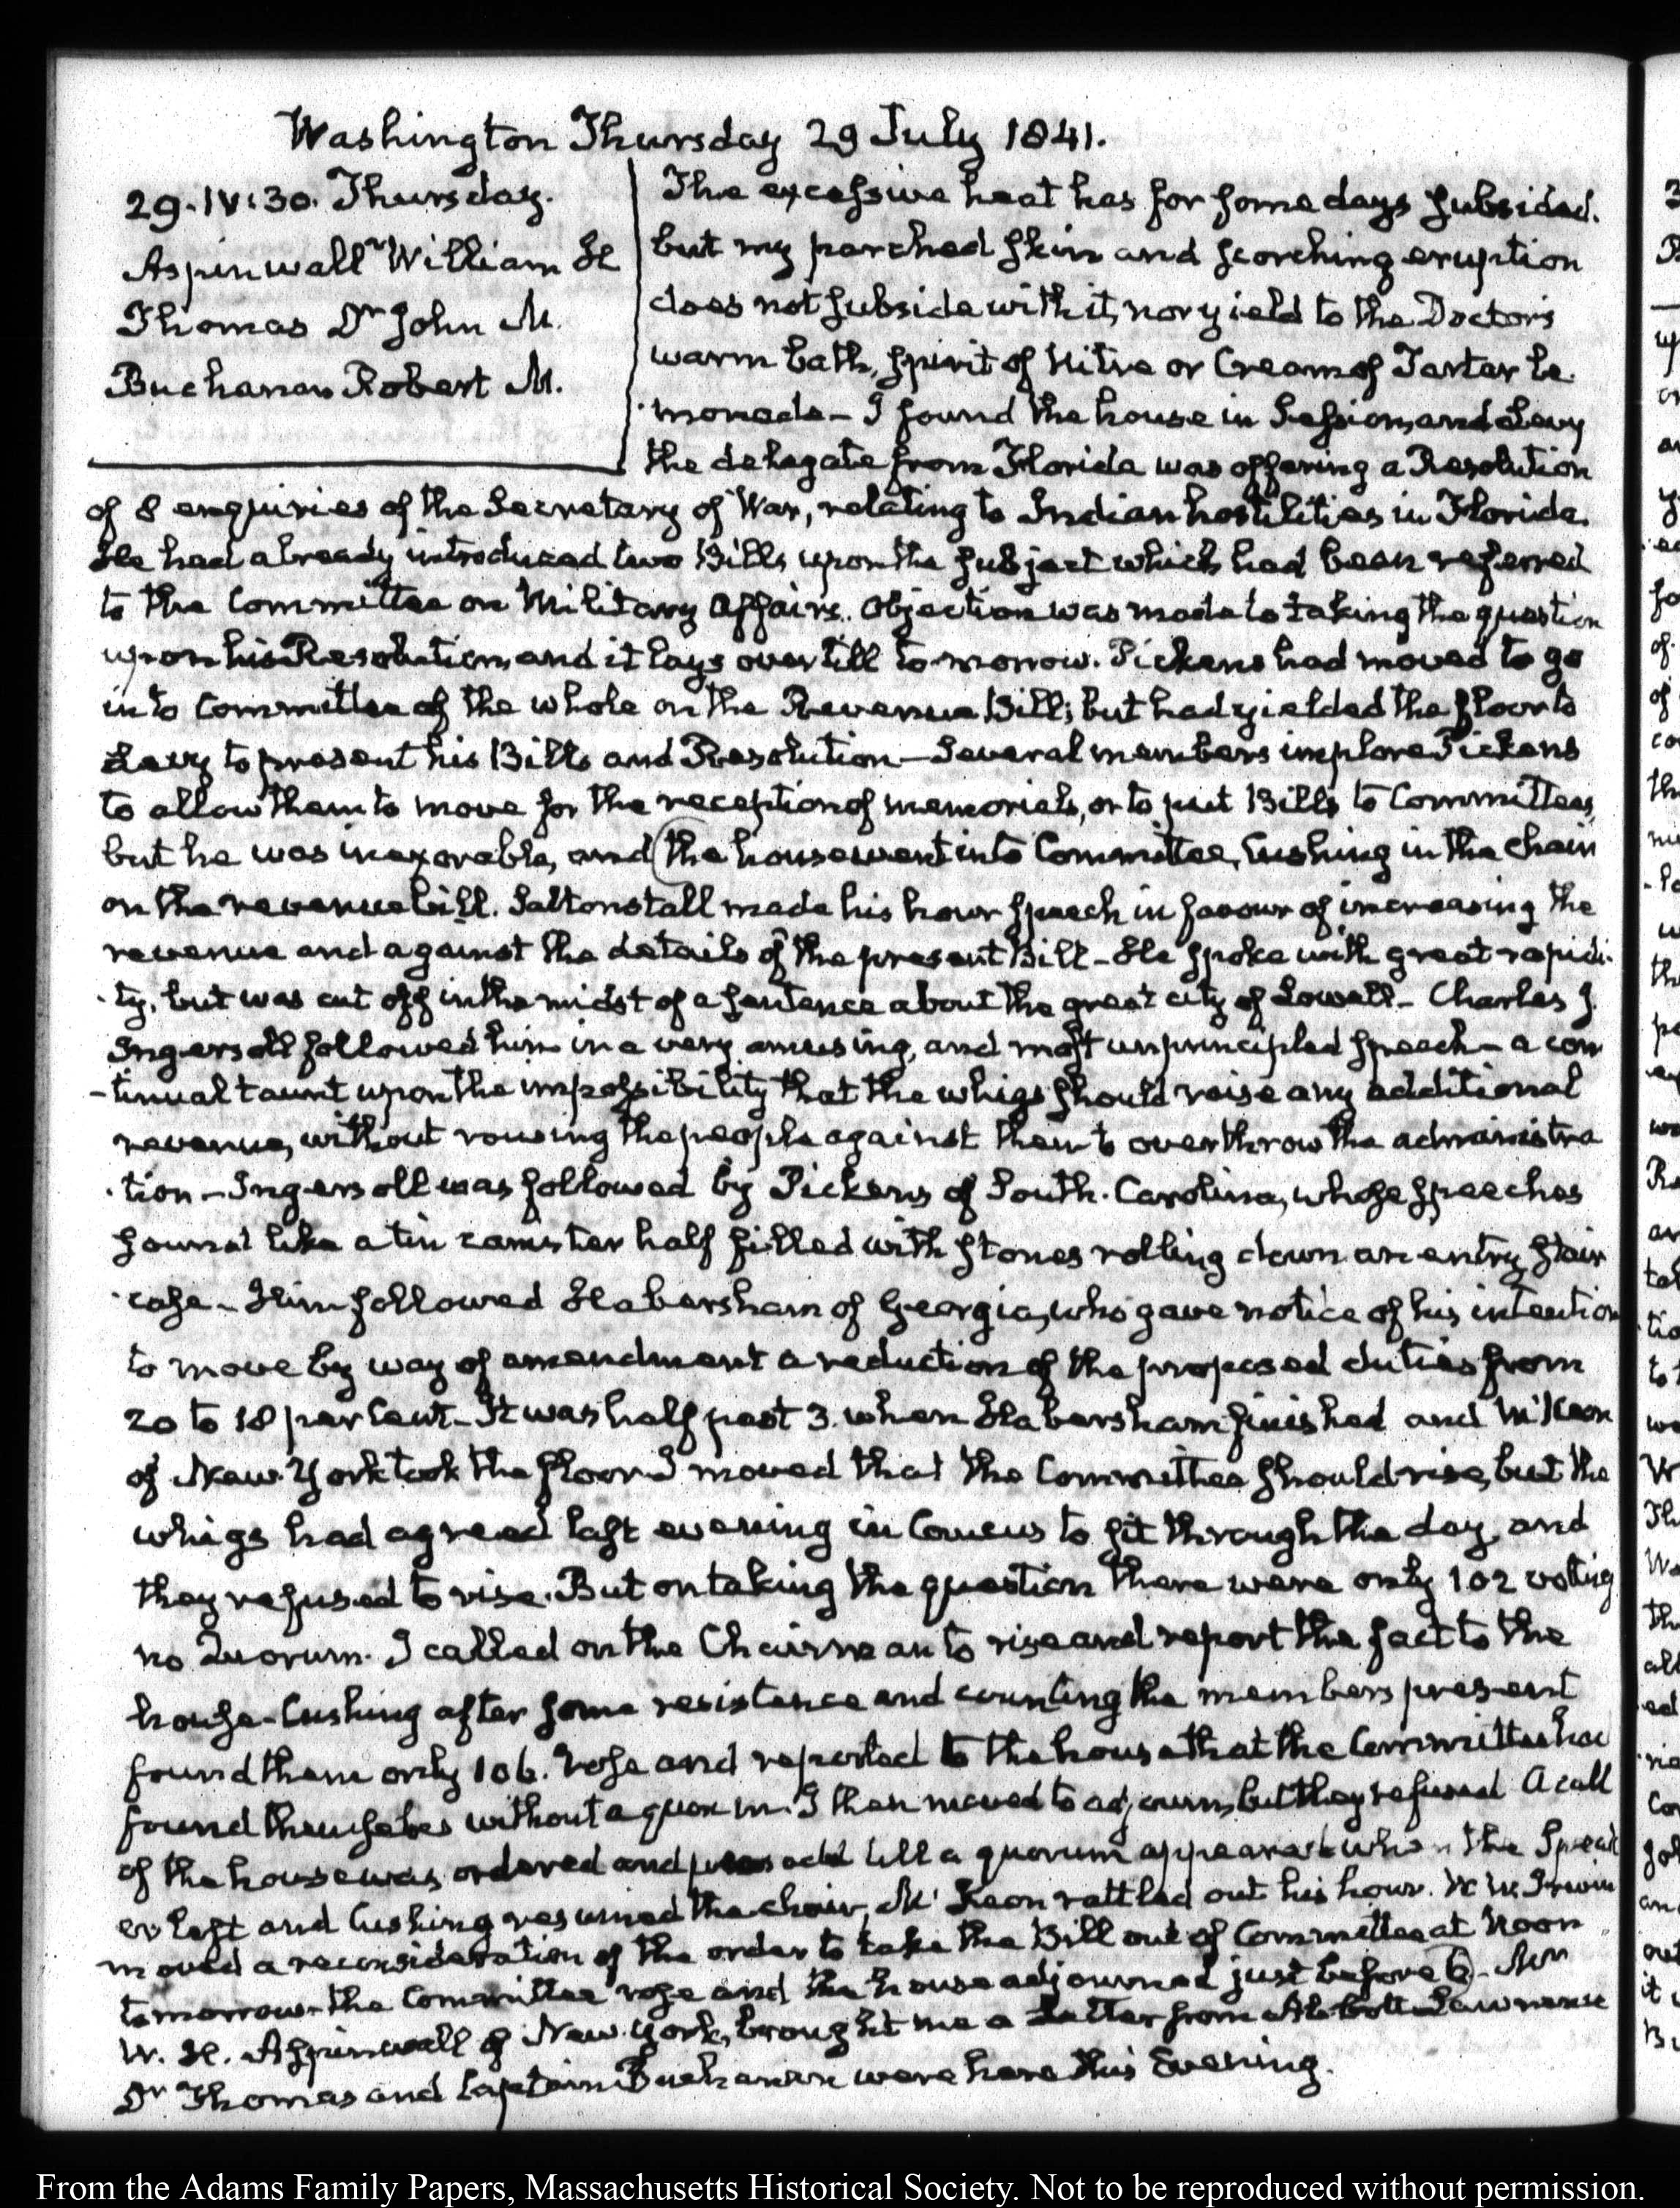 Washington Thursday 29 July 1841.
29. IV:30. Thursday.
Aspinwall William H
Thomas Dr John M.
Buchanan Robert M.
The excessive heat has for some days subsided.
but my parched skin and scorching eruption
does not subside with it, nor yield to the Doctors
warm bath, spirit of Nitre or Cream of Tartar Le
-monade - I found the house in Session, and Levy
the delegate from Florida was offering a Resolution
of 8 enquiries of the Secretary of War, relating to Indian hostilities in Florida.
He had already introduced two Bills upon the subject which had been referred
to the Committee on Military Affairs. Objection was made to taking the question
upon his Resolution, and it lays over till to-morrow. Pickens had moved to go
into Committee of the whole on the Revenue Bill; but had yielded the floor to
Levy to present his Bills and Resolution - Several members implore Pickens
to allow them to move for the reception of memorials, or to put Bills to Committees,
but he was inexorable, and the house went into Committee, Cushing in the Chair
on the revenue bill. Saltonstall made his hour speech in favour of increasing the
revenue and against the details of the present Bill - He spoke with great rapidi-
-ty, but was cut off in the midst of a sentence about the great city of Lowell - Charles J.
Ingersoll followed him in a very amusing, and most unprincipled speech - a con
-tinual taunt upon the impossibility that the whigs should raise any additional
revenue, without rousing the people against them to overthrow the administra
-tion - Ingersoll was followed by Pickens of South-Carolina, whose speeches
sound like a tin canister half filled with stones rolling down an entry stair
-case - Him followed Habersham of Georgia, who gave notice of his intention
to move by way of amendment a reduction of the proposed duties from
20 to 18 per Cent - It was half past 3. when Habersham finished and McKeon
of New-York took the floor I moved that the Committee should rise, but the
whigs had agreed last evening in Caucus to sit through the day, and
they refused to rise. But on taking the question there were only 102 voting
no Quorum. I called on the Chairman to rise and report the fact to the
house - Cushing after some resistance and counting the members present
found them only 106. rose and reported to the house that the Committee had
found themselves without a quorum. I then moved to adjourn, but they refused A call
of the house was ordered and till a quorum appeared when the Speak
er left and Cushing resumed the chair, McKeon rattled out his hour. W W Irwin
moved a reconsideration of the order to take the Bill out of Committee at Noon
tomorrow - the Committee rose and the house adjourned just before 6 - Mr
W. H. Aspinwall of New-York, brought me a Letter from Abbott Lawrence
Dr Thomas and Captain Buchanan were here this Evening.
From the Adams Family Papers, Massachusetts Historical Society. Not to be reproduced without permission.